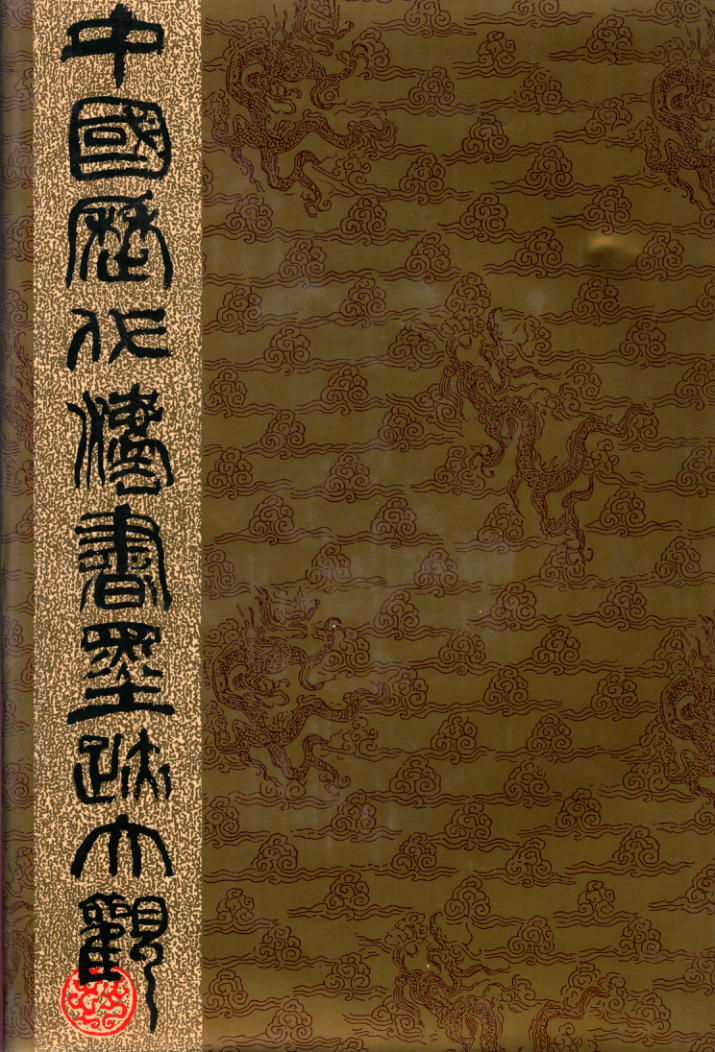 中國歷代法書墨迹大觀